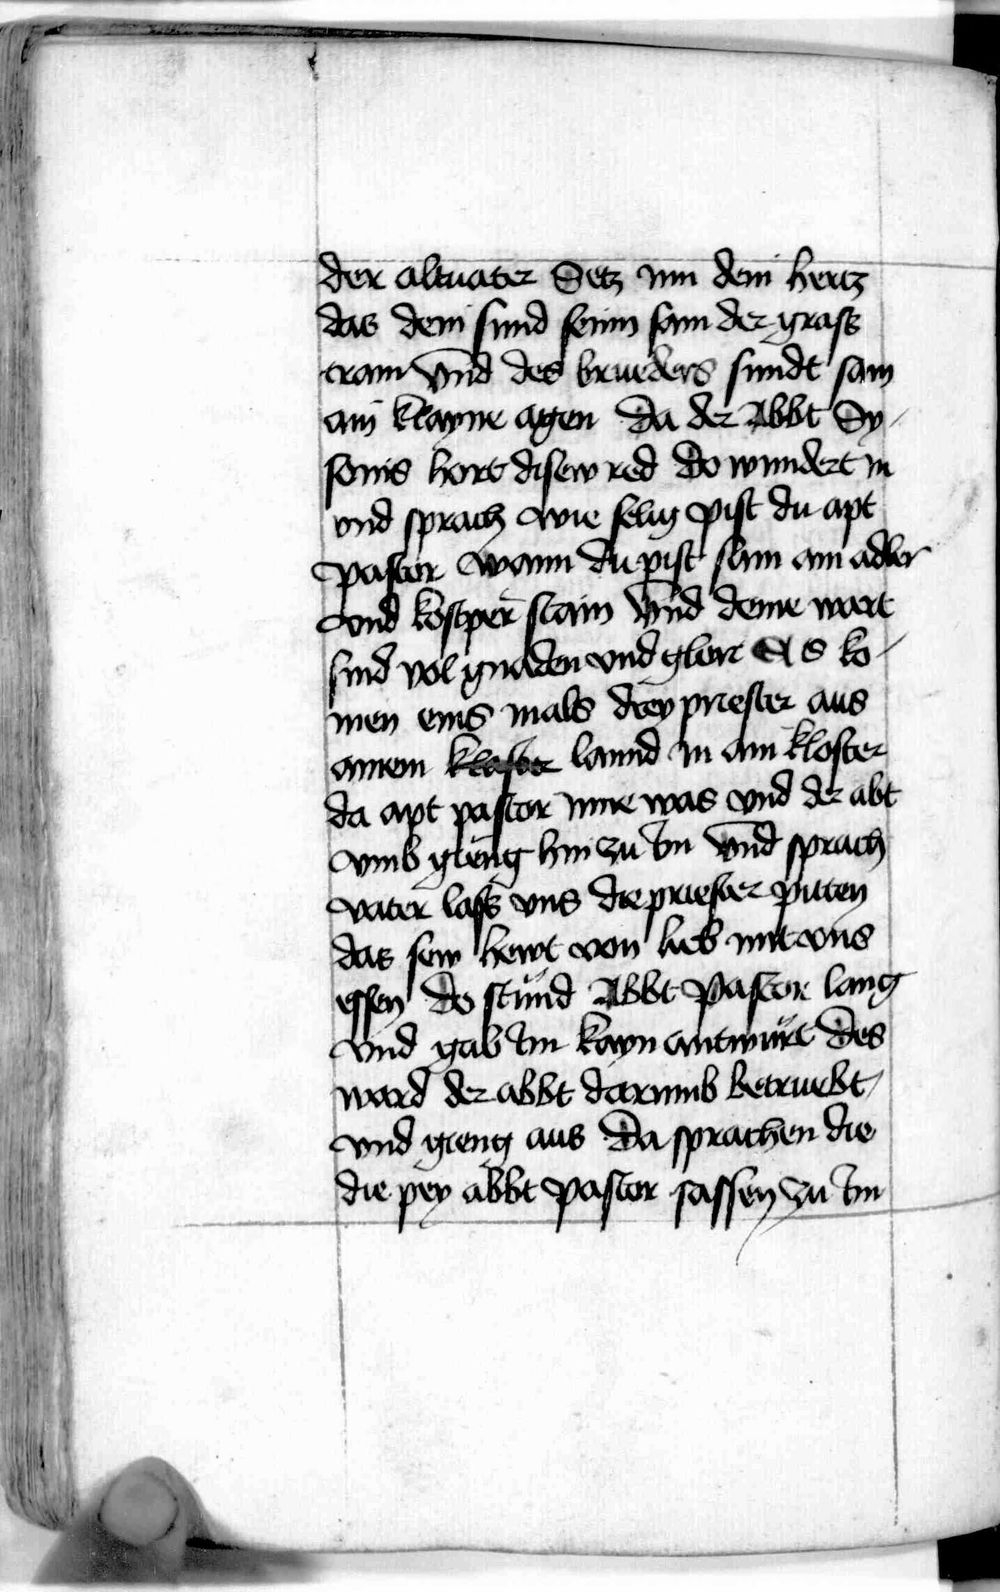 der altuater Setz inn dein hertz
das dein sund seinn sam der gross
tram vnd des brueders sundt sam
ain klayne agen Da der Abbt Sy-
sonis hort disew red Do wundert in
vnd sprach wie selig pist du apt
pastor wann du pist sam ain adler
vnd kostper stain vnd deine wort
sind vol gnaden vnd glori Es ko-
men eins mals drey priester aus
ainem kloster lannd in ain kloster
da apt pastor inne was vnd der abt
vmb gieng hin zu im vnd sprach
vater lass vns die priester pitten
das sew hewt von lieb mit vns
essen Do stund Abbt Pastor lang
vnd gab im kayn antwurt Des
ward der abbt darumb betruebt
vnd gieng aus Da sprachen die
die pey abbt pastor sassen zu im